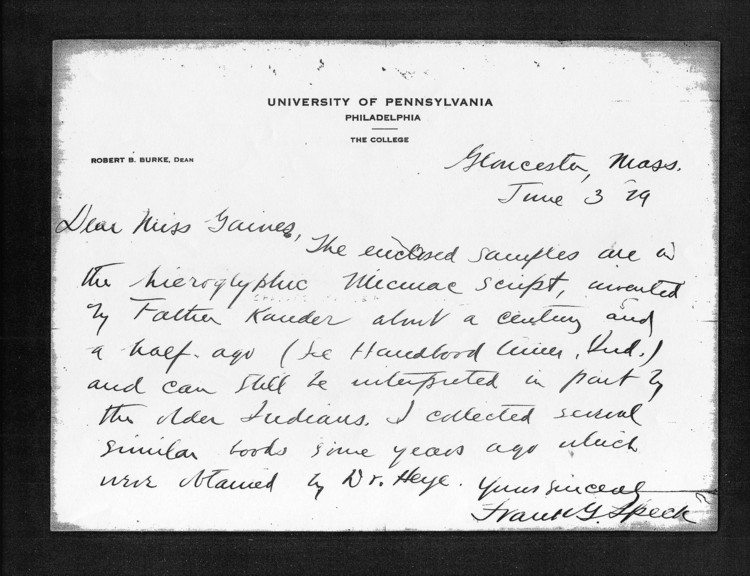 UNIVERSITY OF PENNSYLVANIA
PHILADELPHIA
THE COLLEGE
ROBERT B. BURKE, DEAN
Gloucester, Mass.
June 3 29
Dear Miss Gaines,
The enclosed samples are in
the hieroglyphic Micmac script, invented
by Father Kauder about a century and
a half ago (See Handbook Amer. Ind.)
and can still be interpreted in part by
the older Indians. I collected several
similar books some years ago which
were obtained by Dr. Heye.
Yours sincerely
Frank G. Speck